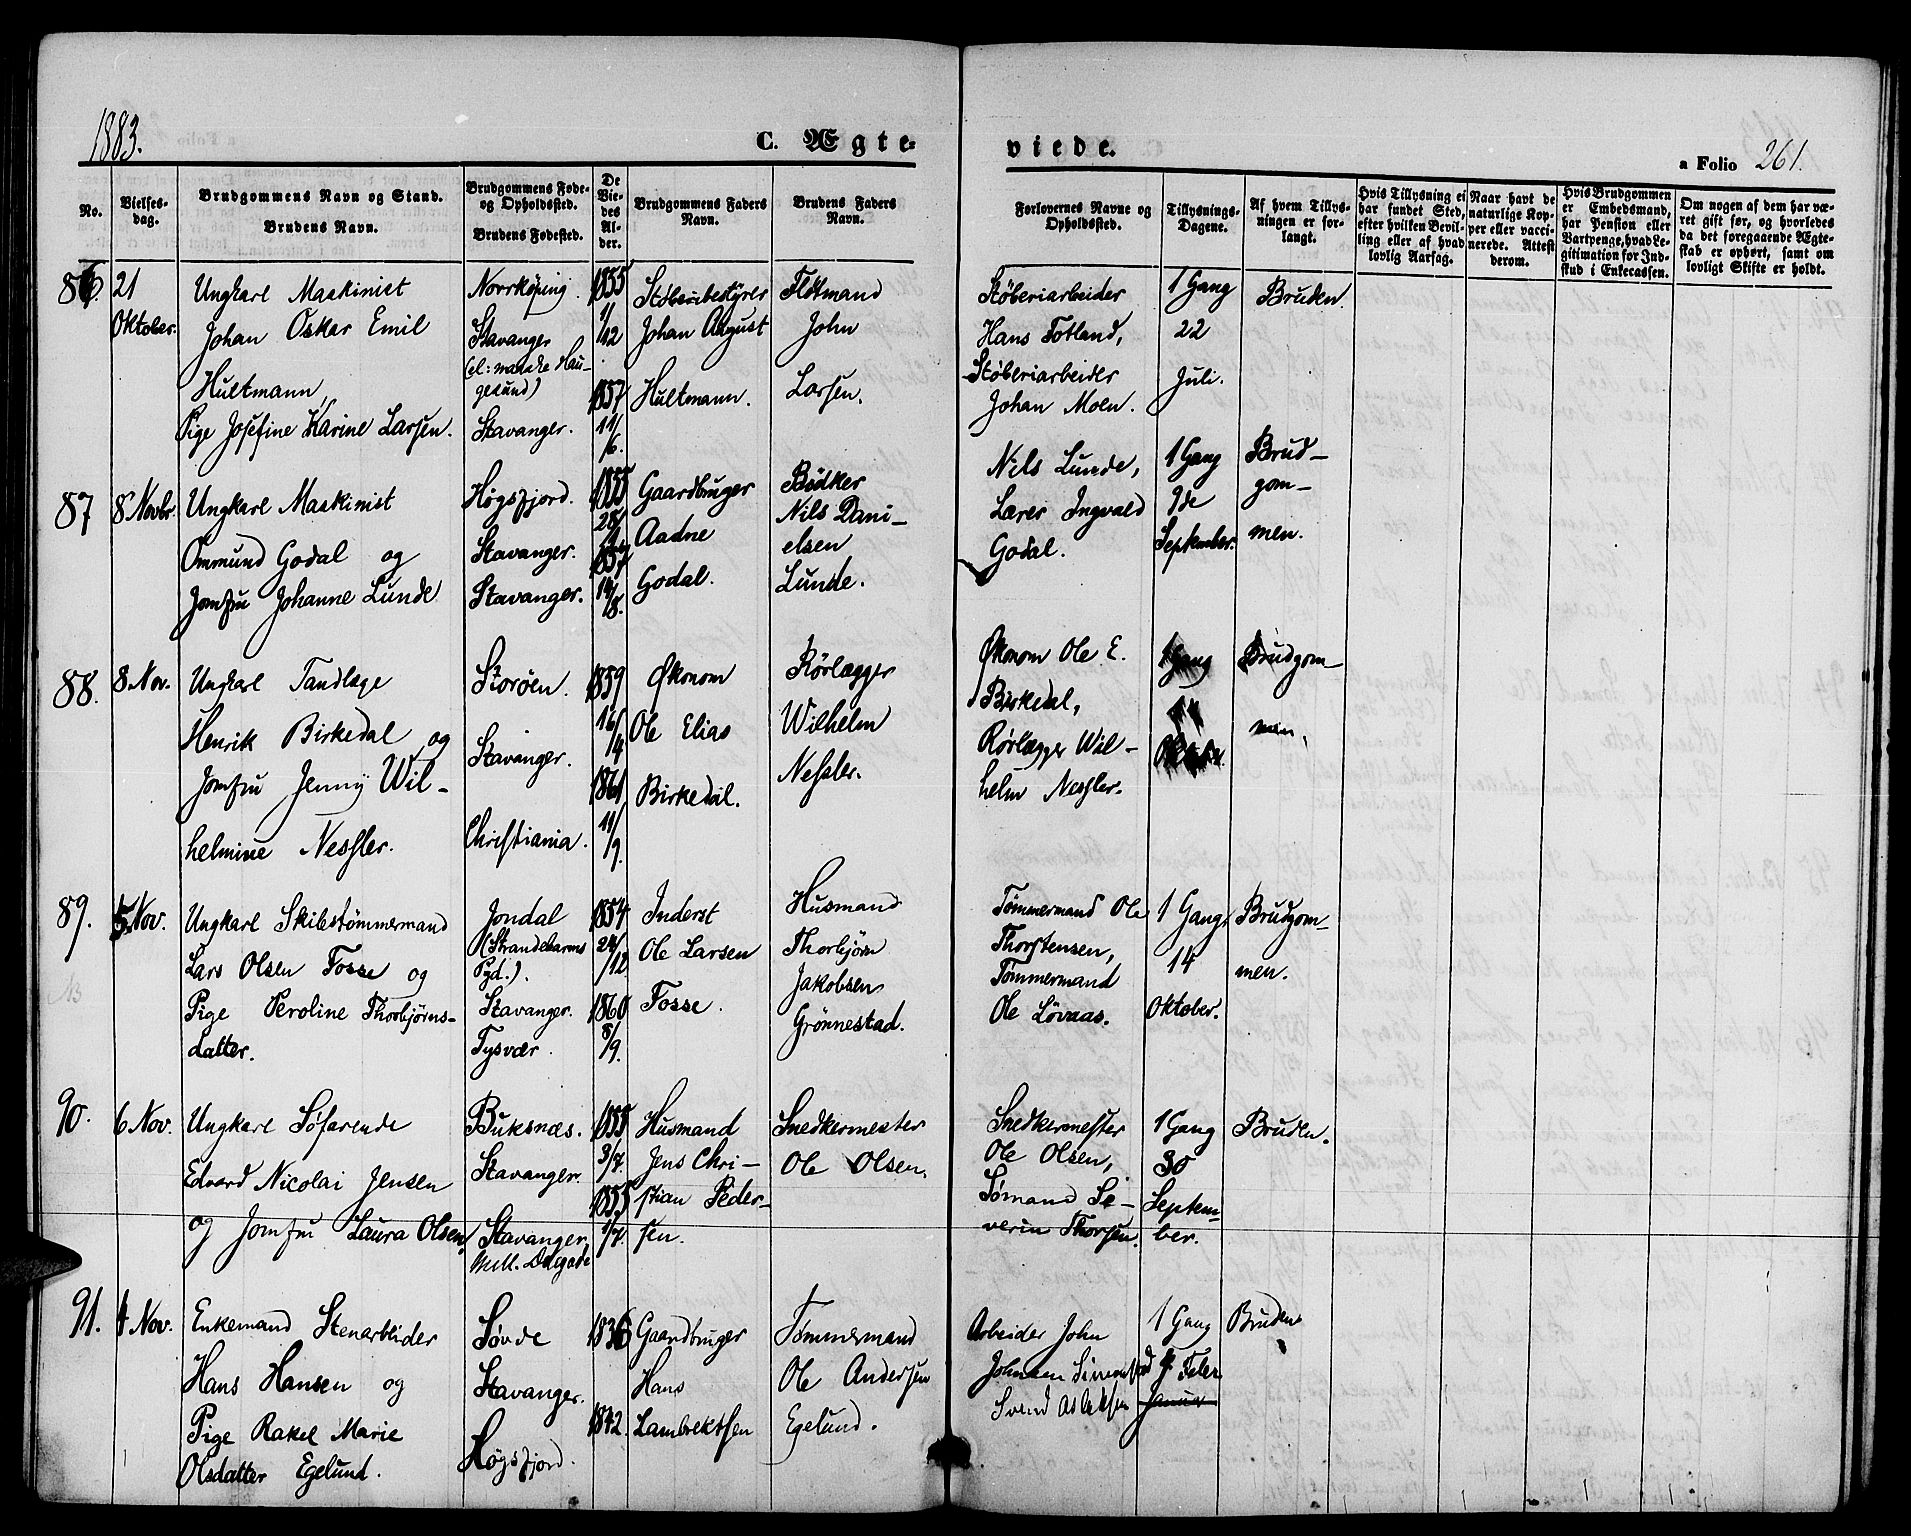 1883.
C. Ægte-
viede.
a Folio 261.
No.
Vielses-
dag.
Brudgommens Navn og Stand.
Brudens Navn.
Brudgommens Føde-
og Opholdssted.
Brudens Fødested.
De
Vie-
des
Al-
der.
Brudgommens Faders
Navn.
Brudens Faders
Navn.
Forlovernes Navne og
Opholdssted.
Tillysnings-
Dagene.
Af hvem Tillys-
ningen er for-
langt.
Hvis Tillysning ei
har fundet Sted,
efter hvilken Bevil-
ling eller af hvad
lovlig Aarsag.
Naar havt de
naturlige Kop-
per eller vacci-
nerede. Attest
derom.
Hvis Brudgommen
er Embedsmand,
har Pension eller
Vartpenge, hvad Le-
gitimation for Ind-
skud i Enkecassen.
Om nogen af dem har væ-
ret gift før, og hvorledes
da det foregaaende Ægte-
skab er ophørt, samt om
lovligt Skifte er holdt.
86
21
Oktober.
Ungkarl Maskinist
Johan Oskar Emil
Hultmann,
Pige Josefine Karine Larsen.
Norrköping.
Stavanger
(el: maaske Hau-
gesund)
Stavanger.
1855
1/
12
1857
11/
6.
Støberibestyrer
Johan August
Hultmann.
Flødmand
John
Larsen.
Støberiarbeider
Hans Fotland,
Støberiarbeider
Johan Moen.
1 Gang
22
Juli.
Bruden.
87
8 Novbr.
Ungkarl Maskinist
Ommund Godal og
Jomfru Johanne Lunde
Høgsfjord.
Stavanger.
Stavanger.
1855
1857
14/
8.
Gaardbruger
Aadne
Godal.
Bødker
Nils Dani-
elsen
Lunde.
Nils Lunde,
Lærer Ingvald
Godal.
1 Gang
9de
September.
Brud-
gom-
men.
88.
8 Nov.
Ungkarl Tandlæge
Henrik Birkedal og
Jomfru Jenny Wil-
helmine Nessler.
Storøen.
Stavanger.
Christiania.
1859
16/
4
1861
11/
9.
Økonom
Ole Elias
Birkedal.
Rørlægger
Wilhelm
Nessler.
Økonom Ole E.
Birkedal,
Rørlægger Wil-
helm Nessler.
1 Gang
Oktober
Brudgom-
men.
89.
5 Nov.
Ungkarl Skibstømmermand
Lars Olsen Fosse og
Pige Peroline Thorbjørns-
datter.
Jondal
(Strandebarms
Pgd.).
Stavanger.
Tysvær.
1854
24/
12
1860
8/
9.
Inderst
Ole Larsen
Fosse.
Husmand
Thorbjørn
Jakobsen
Grønnestad.
Tømmermand Ole
Thorstensen,
Tømmermand
Ole Løvaas.
1 Gang
14
Oktober.
Brudgom-
men.
90.
6 Nov.
Ungkarl Søfarende
Edvard Nicolai Jensen
og Jomfru Laura Olsen,
Buksnæs.
Stavanger.
Stavanger.
Mell. Dalgade
1855
3/7.
1855
1/7.
Husmand
Jens Chri-
stian Peder-
sen.
Snedkermester
Ole Olsen.
Snedkermester
Ole Olsen,
Sømand Se-
verin Thorsen.
1 Gang
30
Septem-
ber.
Bruden.
91.
4 Nov.
Enkemand Stenarbeider
Hans Hansen og
Pige Rakel Marie
Olsdatter Egelund.
Søvde
Stavanger.
Høgsfjord.
1836
1842.
Gaardbruger
Hans
Lambrektsen
Tømmermand
Ole Andersen
Egelund.
Arbeider John
Johnsen
Svend Aslaksen
1 Gang
Januar
Bruden